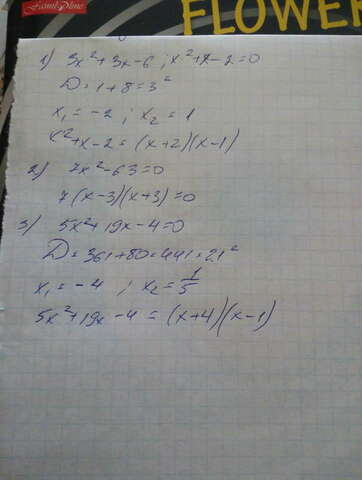 FLOWER
1) 3x²+3x-6 ; x²+x-2=0
D=1+8=3²
x₁=-2 ; x₂=1
x²+x-2=(x+2)(x-1)
2) 7x²-63=0
7(x-3)(x+3)=0
3) 5x²+19x-4=0
D=361+80=441=21²
x₁=-4 ; x₂=1/5
5x²+19x-4=(x+4)(x-1)